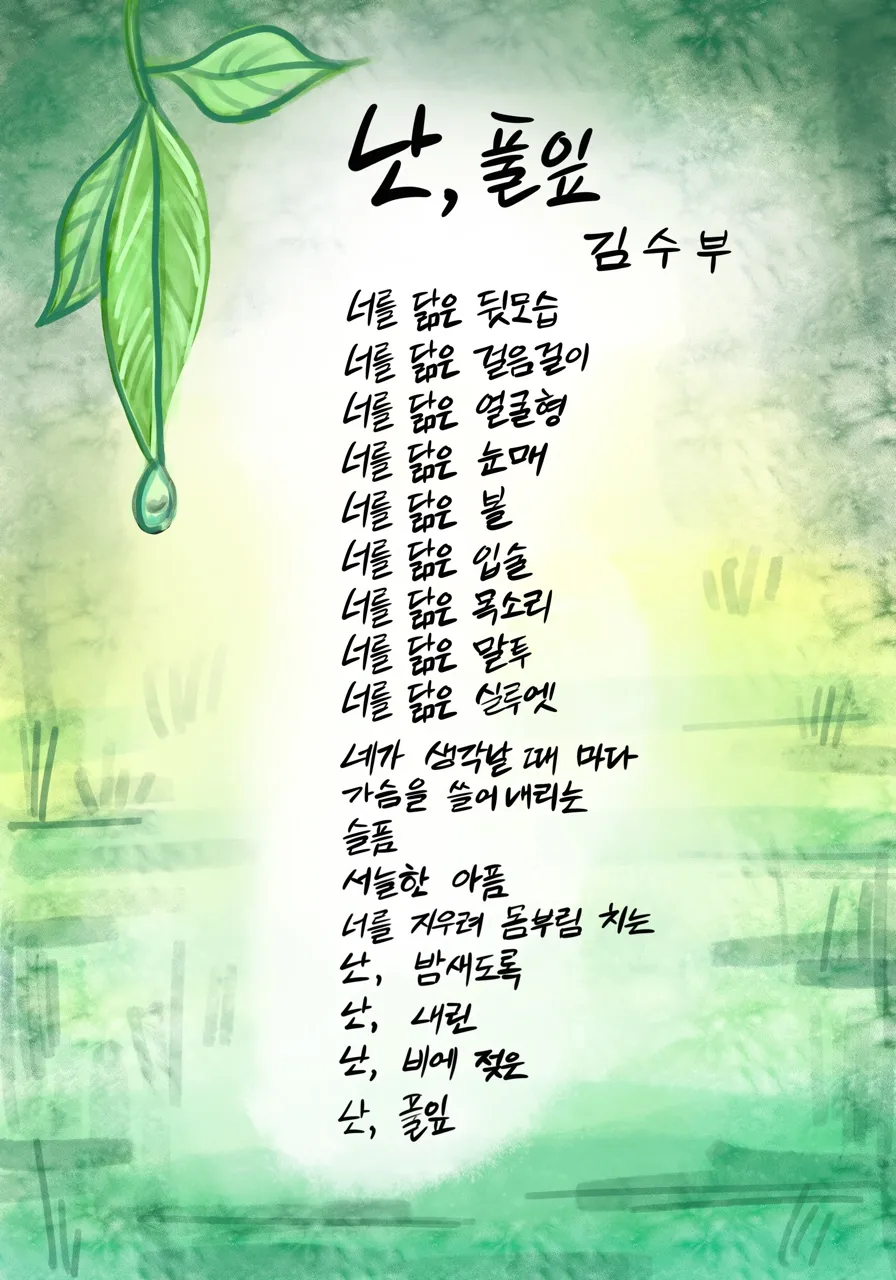 난, 풀잎
김수부
너를 닮은 뒷모습
너를 닮은 걸음걸이
너를 닮은 얼굴형
너를 닮은 눈매
너를 닮은 볼
너를 닮은 입술
너를 닮은 목소리
너를 닮은 말투
너를 닮은 실루엣
네가 생각날 때 마다
가슴을 쓸어내리는
슬픔
서늘한 아픔
너를 지우려 몸부림 치는
난, 밤새도록
난, 내린
난, 비에 젖은
난, 풀잎